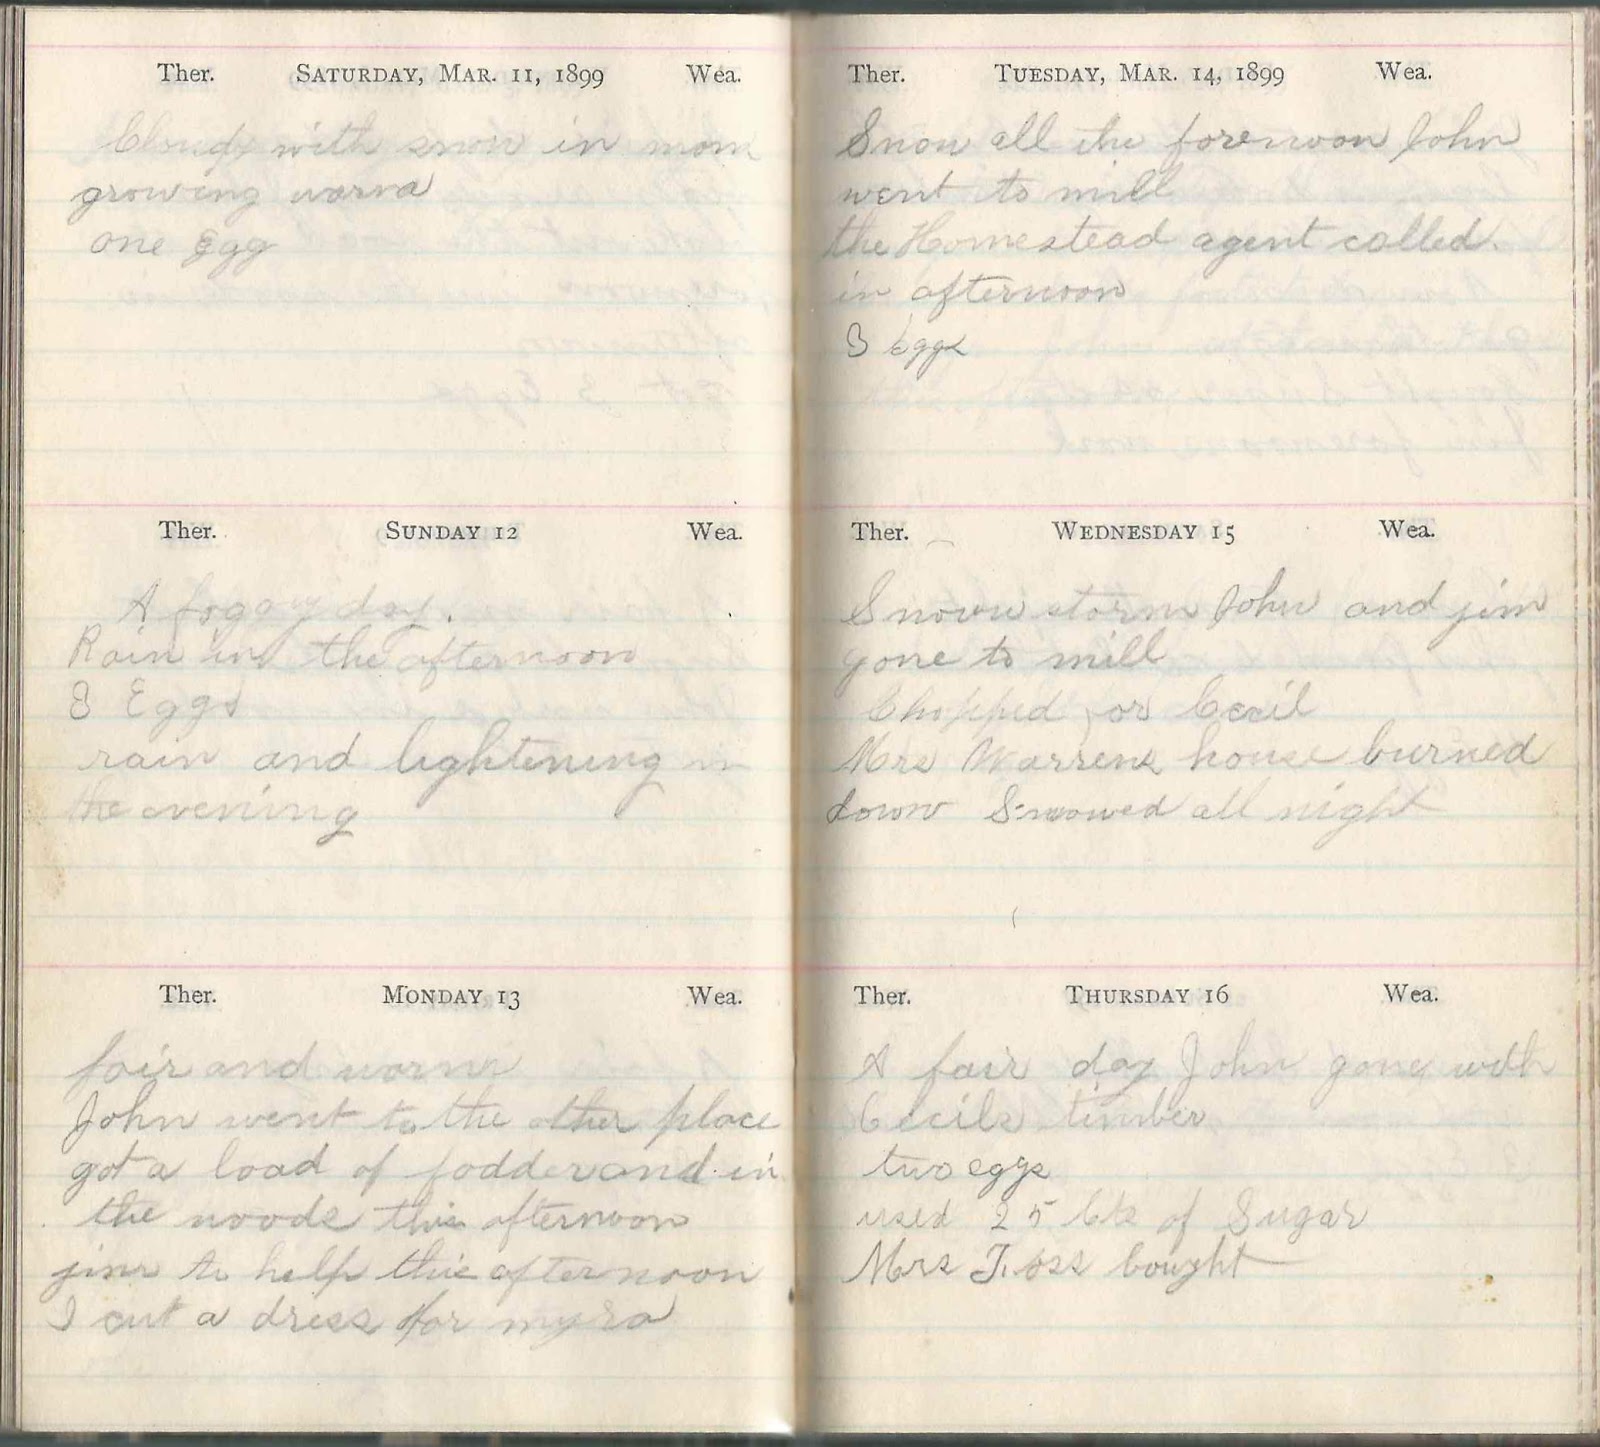 Ther. SATURDAY, MAR. 11, 1899 Wea.
Cloudy with snow in morn
growing warm
one Egg
Ther. SUNDAY 12 Wea.
A foggy day.
Rain in the afternoon
3 Eggs
rain and lightening in
the evening
Ther. MONDAY 13 Wea.
fair and warm
John went to the other place
got a load of fodder and in
the woods this afternoon
jim to help this afternoon
I cut a dress for myra
Ther. TUESDAY, MAR. 14, 1899 Wea.
Snow all the forenoon John
went to mill
the Homestead agent called.
in afternoon
3 Eggs
Ther. WEDNESDAY 15 Wea.
Snow storm John and jim
gone to mill
Chopped for Cecil
Mrs Warrens house burned
down Snowed all night
Ther. THURSDAY 16 Wea.
A fair day John gone with
Cecils timber
two eggs
used 25 cts of Sugar
Mrs bought